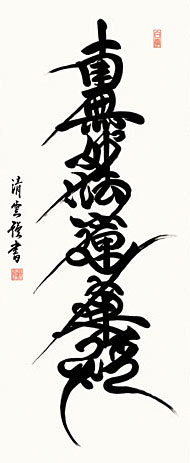 南無妙法蓮華經
清雲謹書